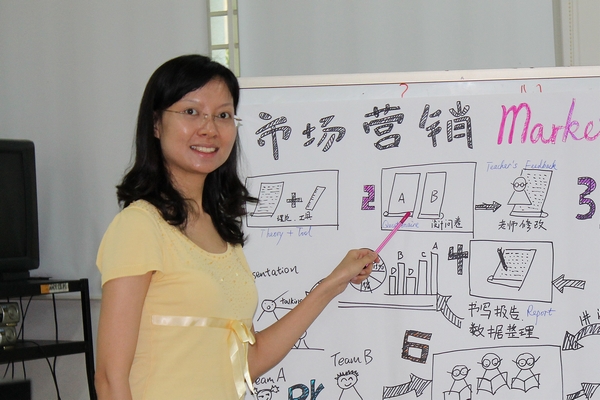 市场营销 Marke
理论、工具
Theory + Tool
2
A
B
Questionnaire
设计问卷
Teacher's Feedback
老师修改
3
4
D
B
C
A
书写报告、
数据整理
Report
6
Team B